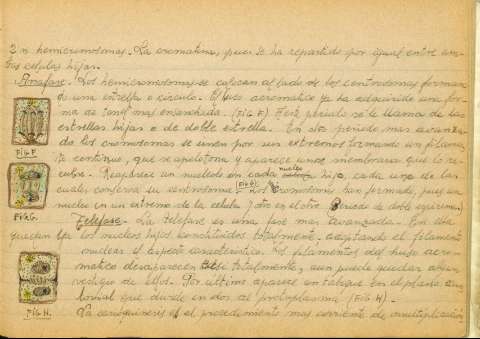 2 n hemicromosomas. La cromatina, pues se ha repartido por igual entre am-
bas celulas hijas.
Anafase. Los hemicromosomas se colocan al lado de los centrosomas forman-
do una estrella o círculo. El huso acromatico ya ha adquirido una for-
ma de tonel mas ensanchada. (FIG F) Este periodo se le llama de las
estrellas hijas o de doble estrella. En otro periodo mas avanza-
do los cromosomas se unen por sus extremos formando un filamen-
to continuo, que se apelotona y aparece una membrana que lo re-
cubre. Reaparece un nucleolo en cada nucleo hijo, cada uno de los
cuales conserva su centrosoma (FIG G). Los cromosomas han formado, pues un
nucleo en un extremo de la celula y otro en el otro
FIG F.
FIG G.
Telofase. La telofase es una fase mas avanzada. En ella
quedan ya los nucleos hijos constituidos totalmente, adoptando el filamento
nuclear el aspecto caracteristico. Los filamentos del huso acro-
matico desaparecen totalmente, aun puede quedar algun
vestigio de ellos. Por ultimo aparece un tabique en el plano ecua-
torial que divide en dos al protoplasma (FIG H).
FIG H.
La cariquinesis es el procedimiento mas corriente de multiplicación